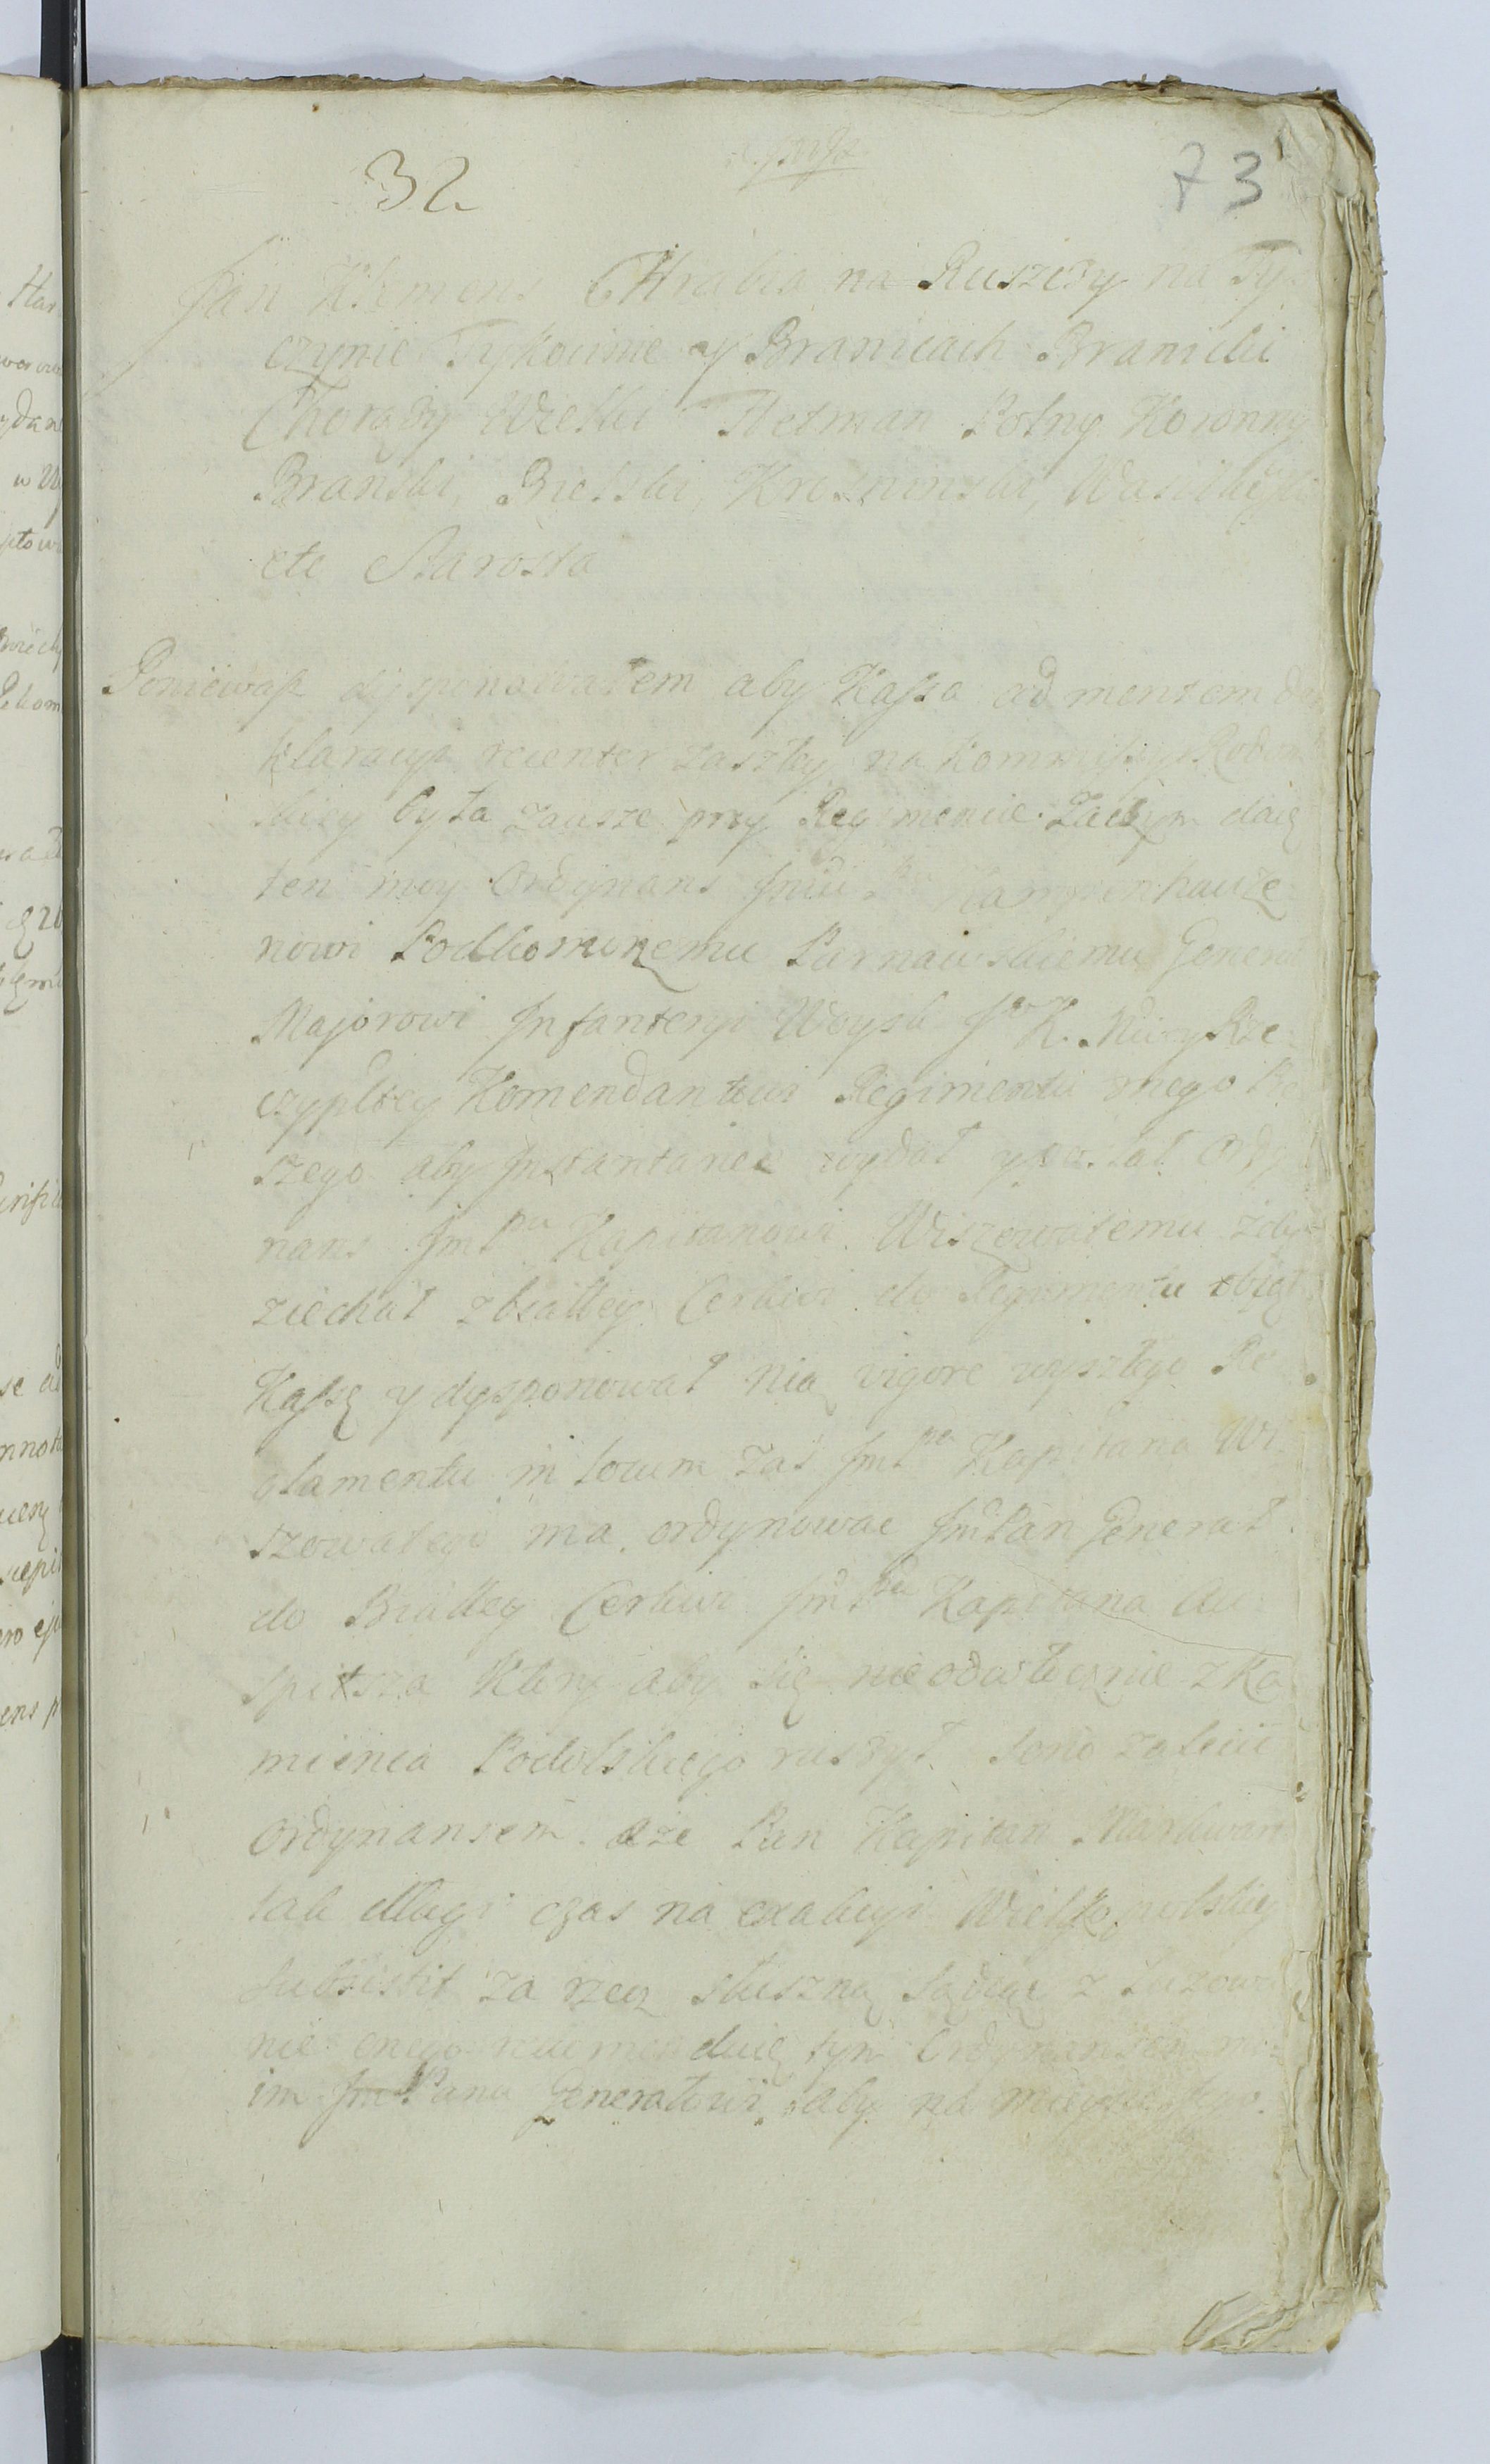 32
73
Jan Klemens Hrabia na Ruszczy na Ty
czynie Tykocinie y Branicach Branicki
Chorąży Wielki Hetman Polny Koronny
Brański, Bielski, Krośninski,
etc Starosta
Ponieważ dysponowałem aby Kassa ad mentem de
klaracyi recenter zaszłey na Kommissyi Radom
skiey była zawsze przy Regimencie. Zaczym daię
ten moy Ordynans Kampenhauze
nowi Podkomorzemu Parnawskiemu Generał
Majorowi Infanteryi Woysk J K. Mci y Rze
czypltey Komendantowi Regimentu mego Pie
szego aby Instantanee wydał y posłał Ordy
nans Jmć Pu Kapitanowi Wiszowatemu żeby
ziechał z białley Cerkwi do Regimentu objął
Kassę y dysponował nią vigore wyszłego Re
glamentu in locum zaś Jmć Pa Kapitana Wi
szowatego ma ordynować Jmć Pan Generał
do Białley Cerkwi Jmć Pa Kapitana Au
spitza Który aby się nieodwłocznie z Ka
mienca Podolskiego ruszył zaleci
Ordynansem. aże Pan Kapitan
tak długi czas na exakcyi Wielkopolskiey
subsistit za rzecz słuszną sądzę z luzowa
nie onego rekomenduię tym Ordynansem mo
im Jmć Panu Generałowi, aby na mieysce Jego.